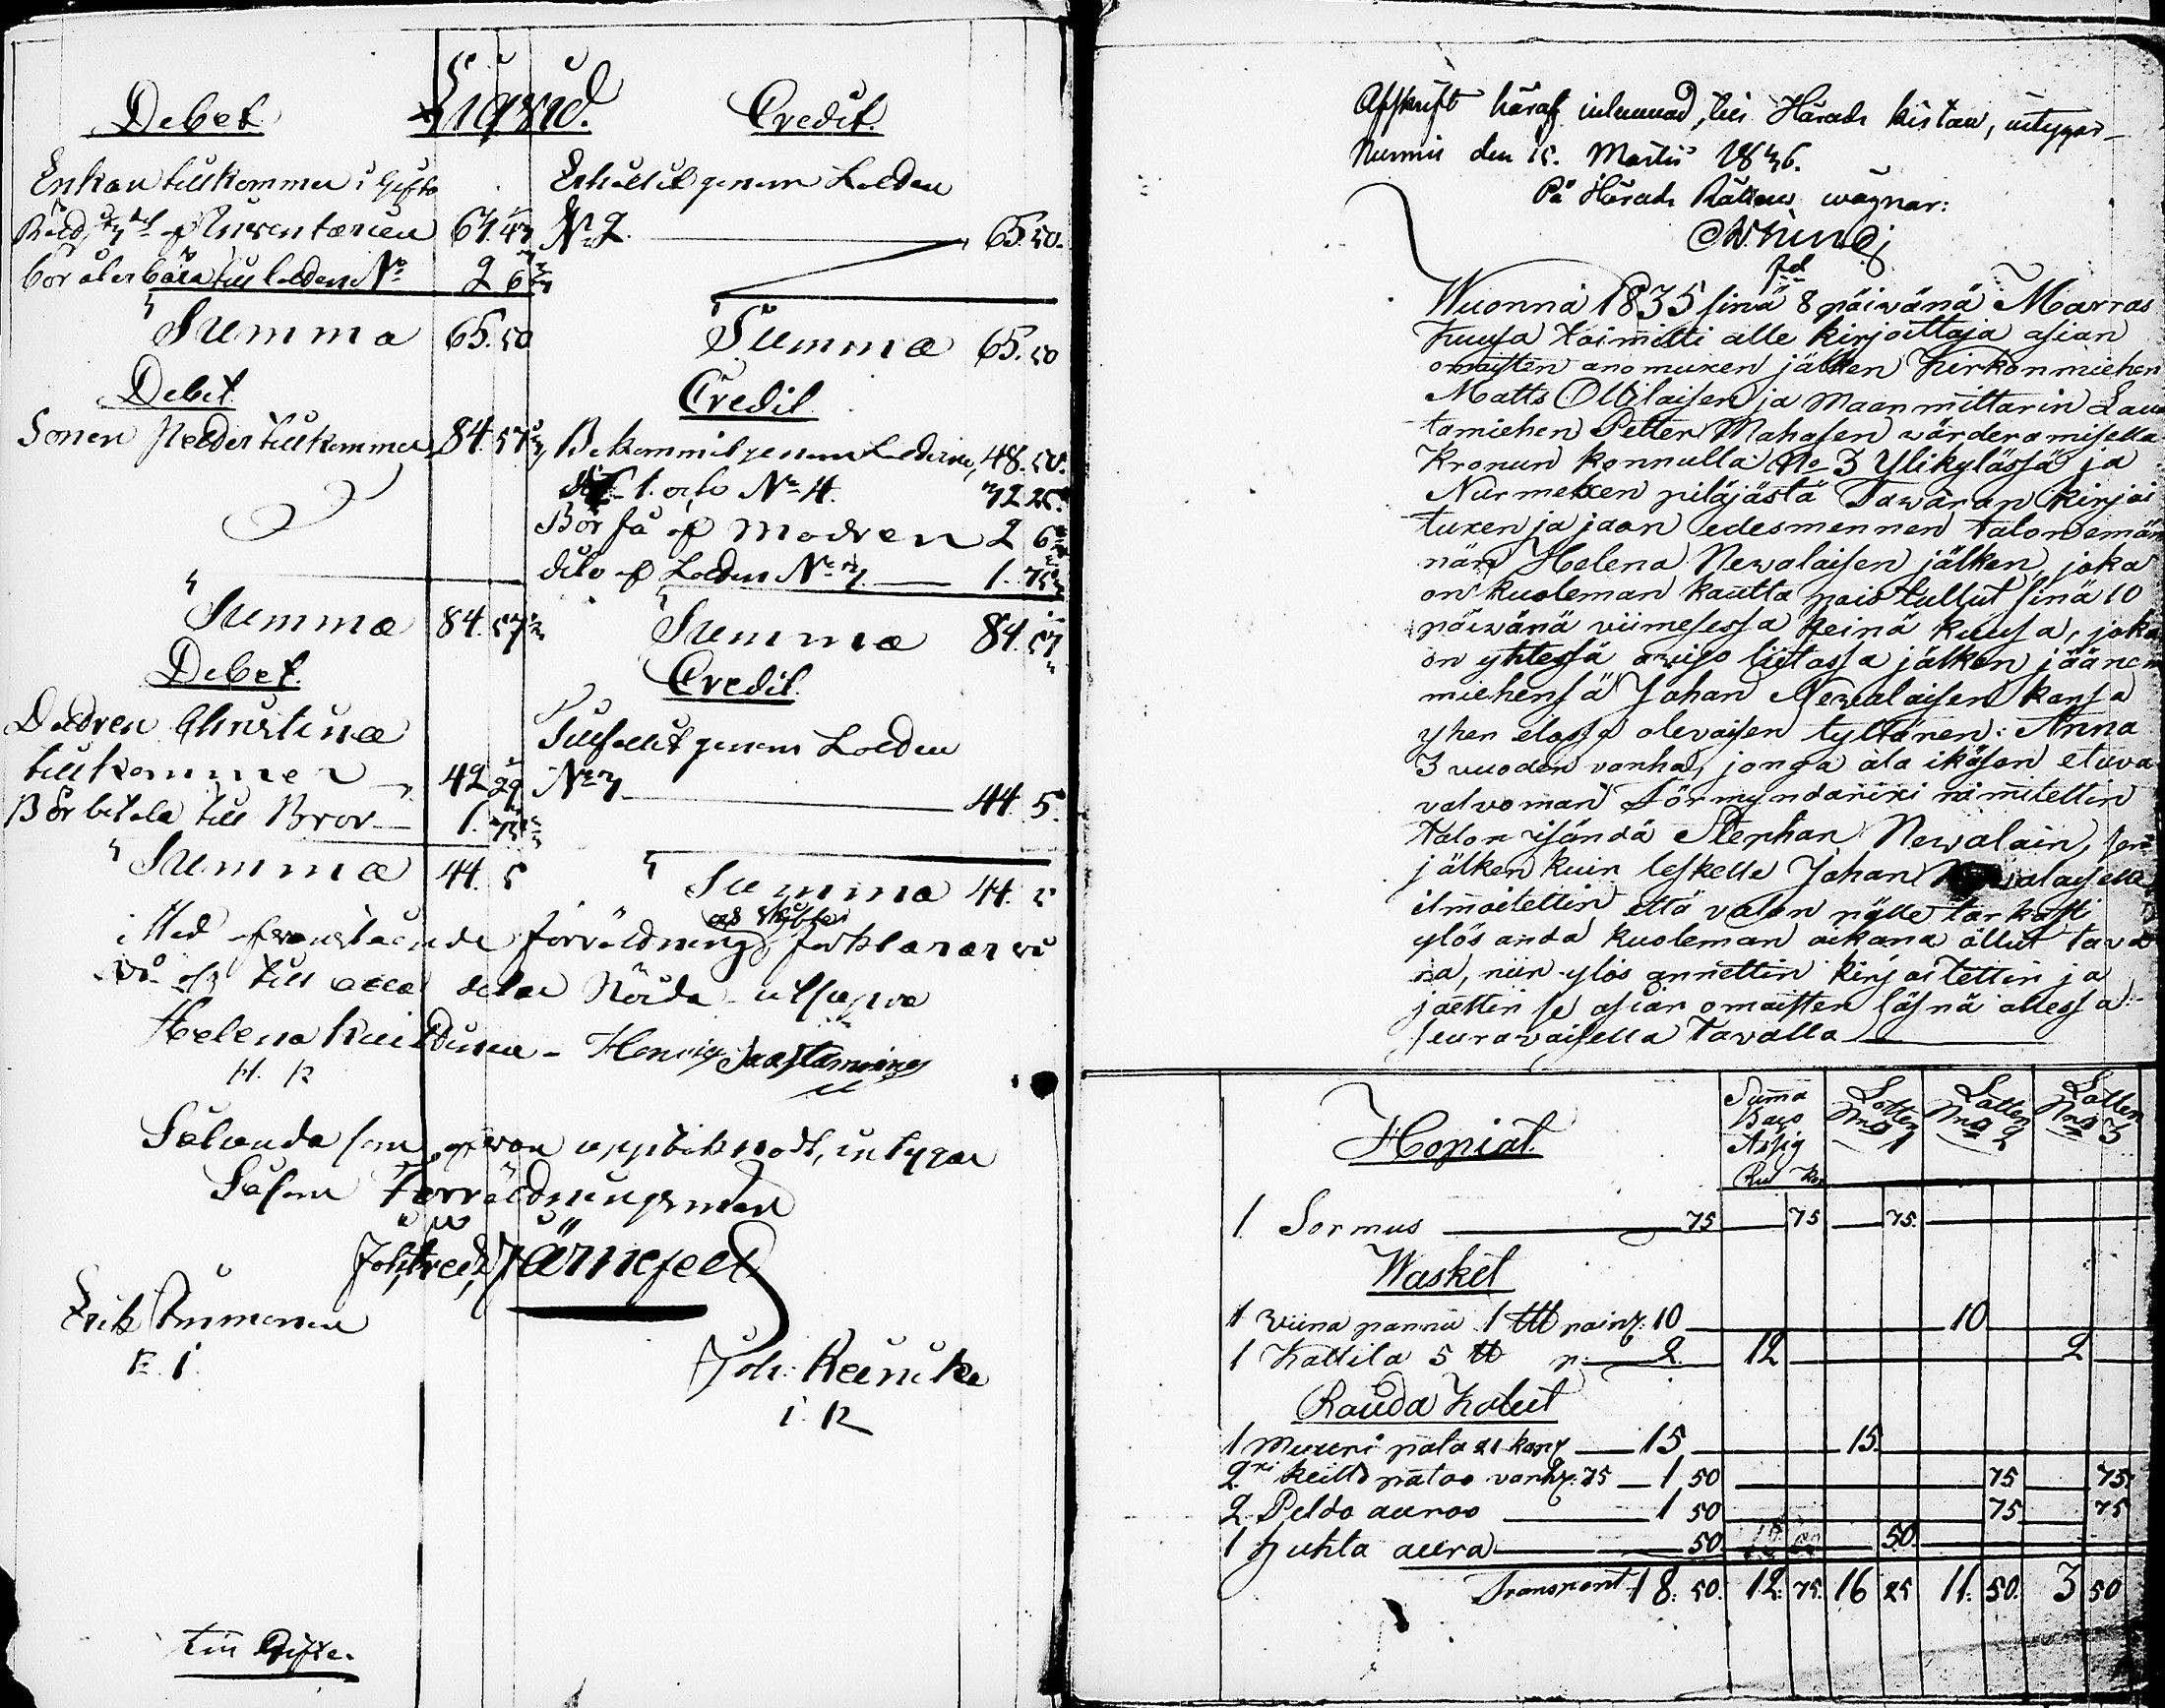 Liqvid.
Debet
Enkan tillkommer i Gifto
Rätt af Inventarien 64. 43
bör återbära till lodden No 2 6
Summa 65. 50
Credit.
Erhållit genom Lodden
No 2. 65. 50.
Summa 65. 50
Debet
Sonen Peder tillkommer 84. 57
Summa 84. 57
Credit
Bekommit genom Loderne, 48. 50.
1. och No 4. 32 25.
Bör få af Modren 2 6
dito af Lodden No 3 1. 75
Summa 84. 57
Debet.
Dottren Christina
tillkommer 42 29
Bör betala till Bror 1. 75
Summa 44. 5
Credit.
Tillfallit genom Lodden
No 3 44. 5.
Summa 44. 5
Med ofvanstående förrättning och skifte förklarar vi
oss till alla delar Nöjda utsäga
Helena Kuildinen - Henric Saastamoinen
H. K
Sålunda som ofvan upptecknadt, intygar
Såsom Förrättningsman
Joh. Fred. Järnefelt
Erik Immonen
E. I.
Joh: Reinike
I. R
Afskrift häraf inlemnad, till Härads kistan, intygar
Nurmis den 15. Martii 1836.
På Härads Rättens wägnar:
Wuonna 1835 sinä 8 päiwänä Marras
kuusa toimitti alle kirjoittaja asian
omaisten anomuxen jälken Kirkonmiehen
Matts Ollilaisen ja Maanmittarin Lau
tamiehen Petter Mahosen wärderamisella
Kronun konnulla No 3 Ylikylässä ja
Nurmexen pitäjästä Tawaran kirjoi
tuxen ja jaon edesmennen talon emän
nän Helena Newalaisen jälken, joka
on kuoleman kautta pois tullut sinä 10
päiwänä viimesessa Heinä kuusa, joka
on yhtessä awiso liitossa jälken jäänen
miehensä Johan Newalaisen kansa
yhen elossa olevaisen tyttären: Anna
3 vuoden vanha, jonga ala ikäisen etuva
valvoman Förmyndarixi nimitettin
talon isändä Stephan Newalain, sen
jälken kuin leskelle Johan Newalaiselle
ilmoitettin että valan päälle tarkasti
ylös anda kuoleman aikana ollut tava
ra, niin ylös annettin kirjoitettin ja
jaettin se asian omaisten läsnä ollessa
seurawaisella tavalla
Hopiat. Summa Bco Assig Ru Ko Lotten No 1 Lotten No 2 Lotten No 3
1 Sormus 75 75 75.
Wasket
1 Viina pannu 1 painz: 10 10
1 Kattila 5 p: 2. 12 2
Rauda Kalut
1 Muuri pata 21 kanz 15 15.
2xi keitto pataa vanhz: 75 1 50 75 75
2 Peldo auraa 1 50 75 75
1 Huhta aura 50 50
Transport 18. 50. 12. 75. 16 25 11. 50. 3 50